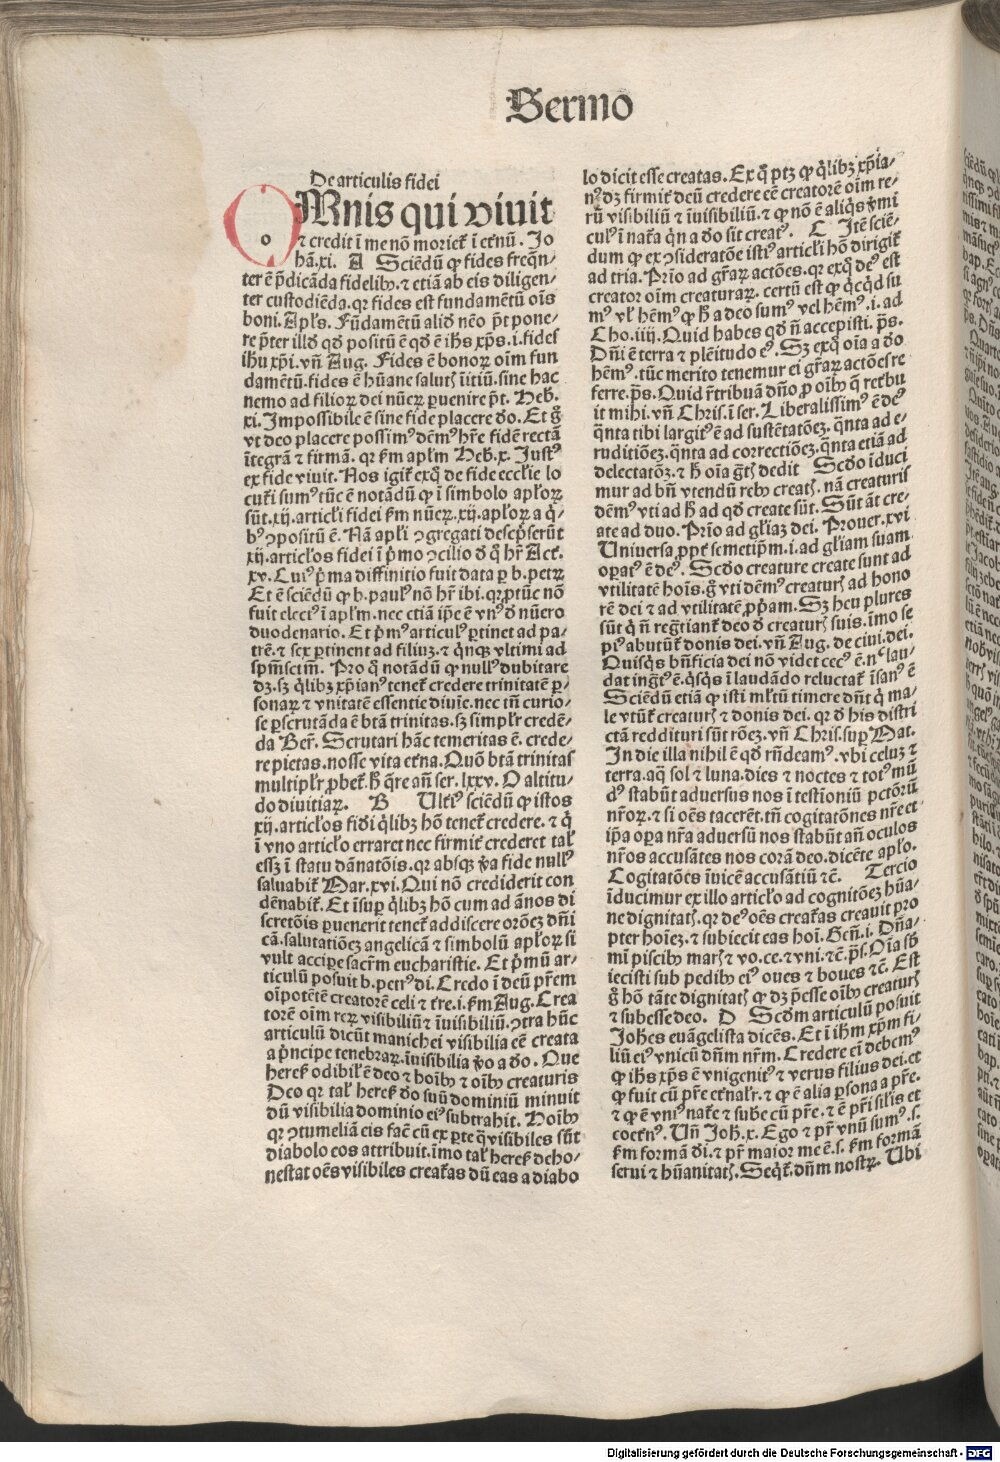 Sermo
De articulis fidei
OMnis qui viuit
⁊ credit ī me nō moriet̄ ī et̄nū. Jo
hā.xi. A Sciēdū ꝙ fides freq̄n-
ter ē p̄dicāda fidelibꝰ. ⁊ etiā ab eis diligen-
ter custodiēda. qr fides est fundamētū oīs
boni. Apl's. Fūdamētū aliđ nēo p̄t pone-
re p̄ter illđ qđ positū ē qđ ē ihs xp̄s. i. fides
ihu xp̄i. vñ Aug. Fides ē bonoꝝ oīm fun
damētū. fides ē hūane saluṫ īitiū. sine hac
nemo ad filioꝝ dei nūeꝝ ꝑuenire p̄t. Heb̄.
xi. Impossibile ē sine fide placere đo. Et ḡ
vt deo placere possimꝰ dēmꝰ hr̄e fidē rectā
ītegrā ⁊ firmā. qr ẜm apl'm Heb̄.x. Justꝰ
ex fide viuit. Nos igit̄ exq̄ de fide eccl'ie lo
cut̄i sumꝰ tūc ē notādū ꝙ ī simbolo apl'oꝝ
sūt. xij. articl'i fidei ẜm nūeꝝ. xij. apl'oꝝ a q̄-
bꝰ ɔpositū ē. Nā apl'i ɔgregati descp̄serūt
xij. articl'os fidei ī p̄mo ɔcilio đ q̄ hr̄ Act̄.
xv. Cuiꝰ p̄ma diffinitio fuit data ꝑ b. petꝝ
Et ē sciēdū ꝙ b. paulꝰ nō hr̄ ibi. qr ꝓtūc nō
fuit electꝰ ī apl'm. nec etiā ip̄e ē vnꝰ đ nūero
duodenario. Et p̄mꝰ articulꝰ ꝑtinet ad pa-
trē. ⁊ sex ꝑtinent ad filiuꝫ. ⁊ q̄nqꝫ vltimi ad
sp̄mscīm. Pro q̄ notādū ꝙ nullꝰ dubitare
dꝫ. sꝫ q̄libꝫ xp̄ianꝰ tenet̄ credere trinitatē ꝑ-
sonaꝝ ⁊ vnitatē essentie diuīe. nec tn̄ curio-
se ꝑscrutāda ē btā trinitas. sꝫ simpl'r credē-
da Ber̄. Scrutari hāc temeritas ē. crede-
re pietas. nosse vita et̄na. Quō btā trinitas
multipl'r ꝓbet̄. ħ q̄re añ ser. lxxv. O altitu-
do diuitiaꝝ. B Ult̄iꝰ sciēdū ꝙ istos
xij. articl'os fiđi q̄libꝫ hō tenet̄ credere. ⁊ q̄
ī vno articl'o erraret nec firmit̄ crederet tal'
essꝫ ī statu dānatōis. qr absqꝫ v̄a fide nullꝰ
saluabit̄ Mar.xvi. Qui nō crediderit con
dēnabit̄. Et īsuꝑ q̄libꝫ hō cum ad ānos di
scretōis ꝑuenerit tenet̄ addiscere orōeꝫ dn̄i
cā. salutatiōeꝫ angelicā ⁊ simbolū apl'oꝝ si
vult accipe sacr̄m eucharistie. Et p̄mū ar-
ticulū posuit b. petrꝰ di. Credo ī deū pr̄em
oīpotētē creatorē celi ⁊ tr̄e. i. ẜm Aug. Crea
torē oīm reꝝ visibiliū ⁊ īuisibiliū. ɔtra hūc
articulū dicūt manichei visibilia eē creata
a p̄ncipe tenebraꝝ. īuisibilia v̄o a đo. Que
heres̄ odibil'ē deo ⁊ hoībꝰ ⁊ oībꝰ creaturis
Deo qr tal' heres̄ đo suū dominiū minuit
dū visibilia dominio eiꝰ subtrahit. Hoībꝰ
qr ɔtumeliā eis fac̄ cū ex ꝑte q̄ visibiles sūt
diabolo eos attribuit. īmo tal' heres̄ deho-
nestat oēs visibiles creat̄as dū eas a diabo
lo dicit esse creatas. Ex q̄ ptꝫ ꝙ q̄libꝫ xp̄ia-
nꝰ dꝫ firmit̄ deū credere eē creatorē oīm re-
rū visibiliū ⁊ īuisibiliū. ⁊ ꝙ nō ē aliq̄s v̄mi
culꝰ ī nat̄a q̄n a đo sit creatꝰ. C Itē sciē-
dum ꝙ ex ɔsideratōe istiꝰ articl'i hō dirigit̄
ad tria. Prīo ad gr̄aꝝ actōes. qr exq̄ deꝰ est
creator oīm creaturaꝝ. certū est ꝙ q̄cqđ su
mꝰ vl' hēmꝰ ꝙ ħ a deo sumꝰ vel hēmꝰ. i. ad
Cho.iiij. Quid habes qđ n̄ accepisti. p̄s.
Dn̄i ē terra ⁊ plēitudo eꝰ. Sꝫ exq̄ oīa a đo
hēmꝰ. tūc merito tenemur ei gr̄aꝝ actōes re
ferre. p̄s. Quid r̄tribuā dn̄o ꝓ oībꝰ q̄ retbu
it mihi. vñ Chris. ī ser. Liberalissimꝰ ē deꝰ
q̄nta tibi largitꝰ ē ad sustētatōeꝫ. q̄nta ad e-
ruditiōeꝫ. q̄nta ad correctiōeꝫ. q̄nta etiā ad
delectatōꝫ. ⁊ ħ oīa gṫ̄s dedit Scđo īduci
mur ad bn̄ vtendū rebꝰ creaṫ. nā creaturis
dēmꝰ vti ad ħ ad qđ create sūt. Sūt āt cre-
ate ad duo. Prīo ad gl'iaꝫ dei. Prouer.xvi
Uniuersa ꝓpt̄ semetip̄m. i. ad gl'iam suam
oꝑatꝰ ē deꝰ. Scđo creature create sunt ad
vtilitatē hoīs. ḡ vti dēmꝰ creaturṫ ad hono
rē dei ⁊ ad vtilitatē ꝓp̄am. Sꝫ heu plures
sūt q̄ n̄ regr̄tiant̄ deo đ creaturṫ suis. īmo se
piꝰ abutūt̄ donis dei. vñ Aug. de ciui. dei.
Quisq̄s bn̄ficia dei nō videt cecꝰ ē. nec lau-
dat ingr̄tꝰ ē. q̄sq̄s ī laudādo reluctat̄ īsanꝰ ē
Sciēdū etiā ꝙ isti ml'tū timere dn̄t q̄ ma-
le vtūt̄ creaturṫ ⁊ donis dei. qr đ his distri
ctā reddituri sūt rōeꝫ. vñ Chris. suꝑ Mat.
In die illa nihil ē qđ rn̄deamꝰ. vbi celuꝫ ⁊
terra. aq̄ sol ⁊ luna. dies ⁊ noctes ⁊ totꝰ mū
dꝰ stabūt aduersus nos ī testioniū pctōrū
nr̄oꝝ. ⁊ si oēs tacerēt. tn̄ cogitatōnes nr̄e et
ip̄a oꝑa nr̄a aduersū nos stabūt añ oculos
nr̄os accusātes nos corā deo. dicēte apl'o.
Cogitatōes īuicē accusātiū ⁊c̄. Tercio
īducimur ex illo articl'o ad cognitōeꝫ hūa-
ne dignitaṫ. qr deꝰ oēs creat̄as creauit pro
pter hoīeꝫ. ⁊ subiecit eas hoī. Gen̄.i. Dn̄a-
mī piscibꝰ marṫ ⁊ vo. ce. ⁊ vni. ⁊c̄. p̄s. Oīa sb̄
iecisti sub pedibꝰ eiꝰ oues ⁊ boues ⁊c̄. Est
ḡ hō tāte dignitaṫ ꝙ dꝫ p̄esse oībꝰ creaturṫ
⁊ subesse deo. D Scđm articulū posuit
Joħes euāgelista dicēs. Et ī ihm xp̄m fi-
liū eiꝰ vnicū dn̄m nr̄m. Credere eī debemꝰ
ꝙ ihs xp̄s ē vnigenitꝰ ⁊ verus filius dei. et
ꝙ fuit cū pr̄e et̄nal'r. ⁊ ꝙ ē alia ꝑsona a pr̄e.
⁊ ꝙ ē vniꝰ nat̄e ⁊ sub̄e cū pr̄e. ⁊ ē pr̄i sil'is et
coet̄nꝰ. Uñ Joħ.x. Ego ⁊ pr̄ vnū sumꝰ. s.
ẜm formā đi. ⁊ pr̄ maior me ē. s. ẜm formā
serui ⁊ hūanitaṫ. Seq̄t̄. dn̄m nostꝝ. Ubi
Digitalisierung gefördert durch die Deutsche Forschungsgemeinschaft - DFG